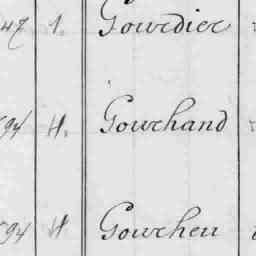 47 1. Gourdier
94 H. Gourhand
94 H Gourheu